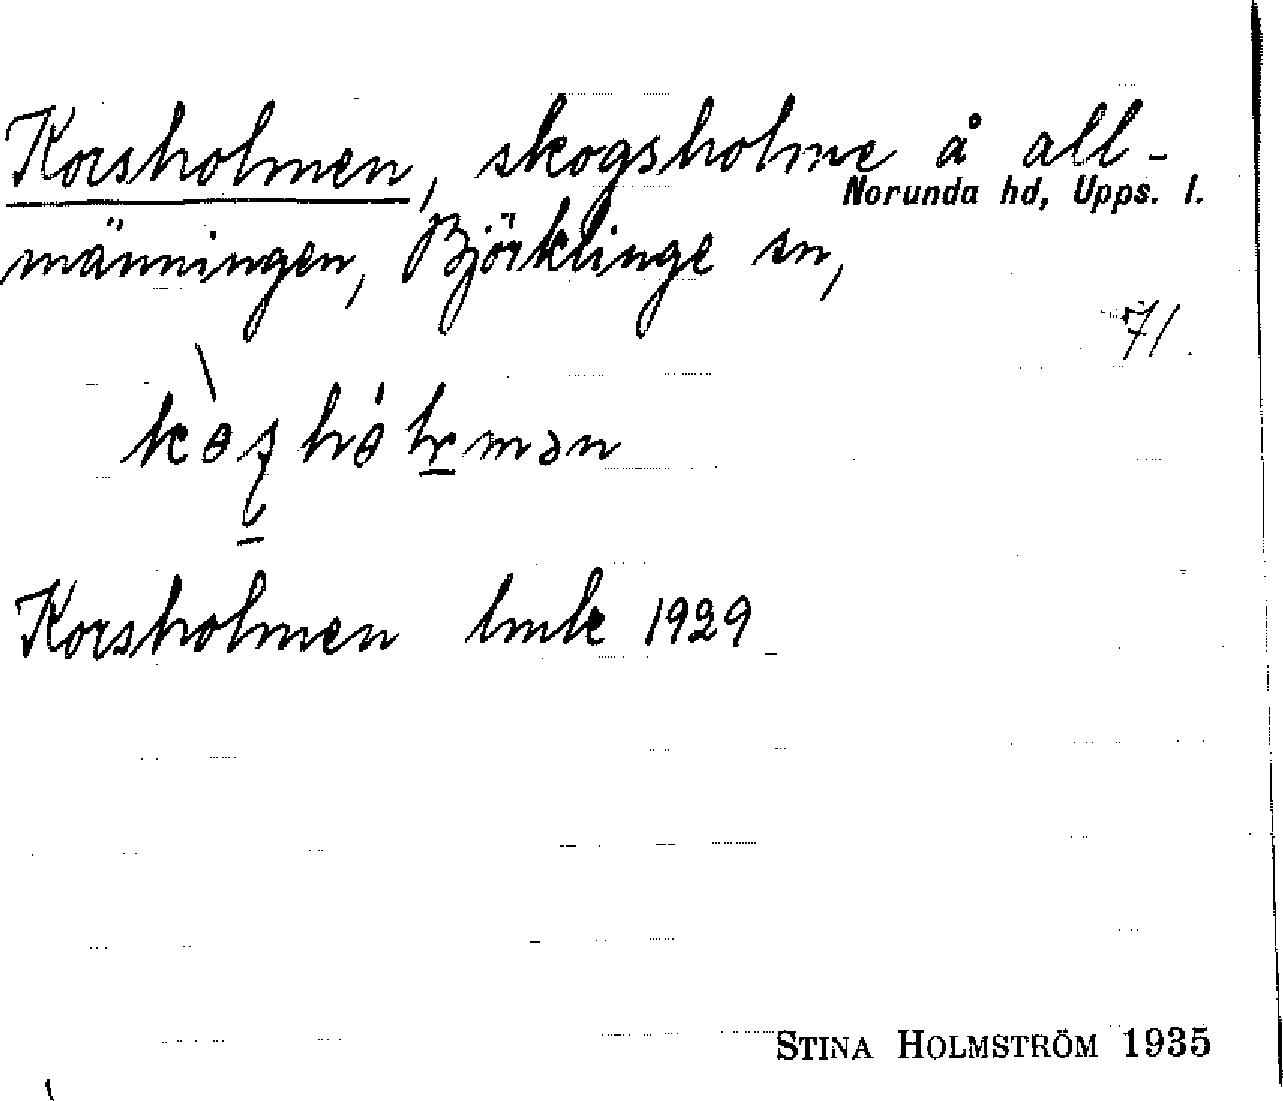 Korsholmen, skogsholme å all-
Norunda hd, Upps. l.
männingen, Björklinge sn,
71.
Korsholmen lmk 1929
STINA HOLMSTRÖM 1935